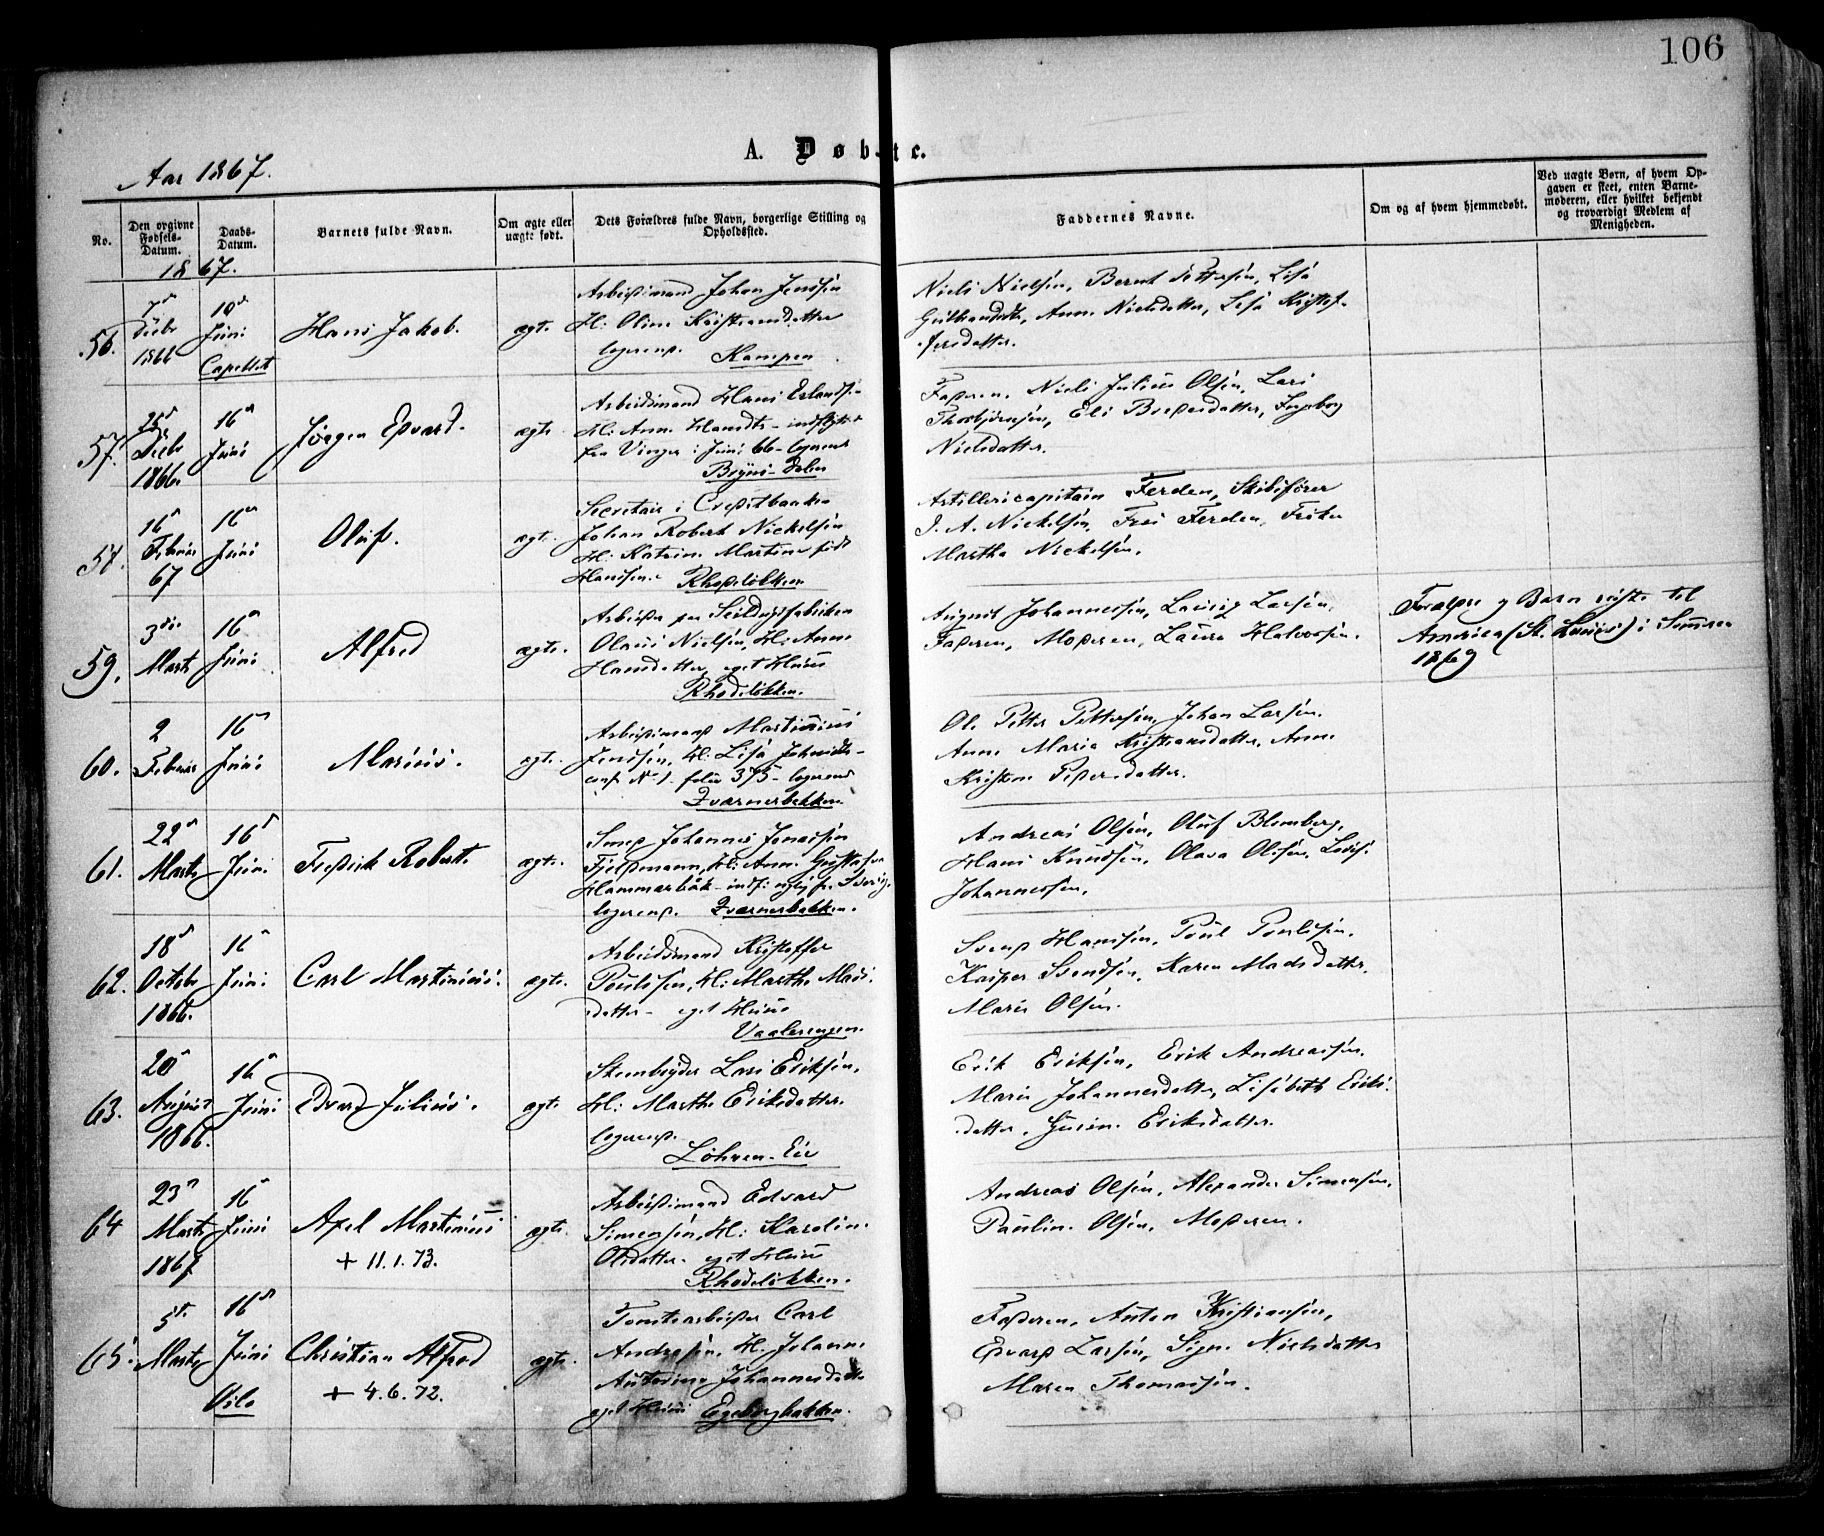 106
A. Døbte.
Aar 1867.
No.
Den opgivne Fødsels-Datum.
Daabs-Datum.
Barnets fulde Navn.
Om ægte eller uægte født.
Dets Forældres fulde Navn, borgerlige Stilling og Opholdssted.
Faddernes Navne.
Om og af hvem hjemmedøbt.
Ved uægte Børn, af hvem Opgaven er skeet, enten Barnemoderen, eller hvilket bekjendt og troværdigt Medlem af Menigheden.
1867.
56.
7de
Decbr
1866
10de
Juni
Capellet
Hans Jakob.
ægte.
Arbeidsmand Johan Jensen
H: Oline Kristiansdatter
logerend.
Kampen
Niels Nielsen, Bernt Pettersen, Lisa
Anne Nielsdatter, Lisa Kristof-
fersdatter.
57.
25de
Decbr
1866.
16de
Juni
Jørgen Edvard.
ægte.
Arbeidsmand Hans Erlands-
H: Anne Hansdtr - indflyttet
fra Vinger i Juni 66 - logerende
Bryns-
Faderen, Niels Julius Olsen, Lars
Thorbjørnsen, Eli Pedersdatter, Ingeborg
Nielsdatter.
58.
16de
Februar
67
16de
Juni
Oluf.
ægte.
Secretair i Creditbanken
Johan Robert Nickelsen
H: Katrine Martine født
Hansen.
Rhodeløkken
Artillericapitain Ferden, Skibsfører
J. A. Nickelsen, Fru Ferden, Frøken
Martha Nickelsen.
59.
3die
Marts
16de
Juni
Alfred
ægte.
Arbeider paa Seildugsfabriken
Olaus Nielsen, H: Anne
Hansdatter, eget Huus
Rhodeløkken.
August Johannessen, Lauritz Larsen,
Faderen, Moderen, Laura Halvorsen.
Forældre og Barn reiste til
America (St. Louis) i Sommeren
1869
60.
2
Februar
16de
Juni
Marius.
ægte.
Arbeidsmand Martinius
Jensen, H: Lisa
anf. No 1. folio 375 - logerend
Kværnerbakken.
Ole Petter Pettersen, Johan Larsen.
Anne Maria Kristiansdatter, Anne
Kristine Pedersdatter.
61.
22de
Marts
16de
Juni
Fredrik Robert.
ægte.
Smed Johannes Jonassen
H: Anne Gustafva
Hammarbåk - indf: nylig fr. Sverig.
logerend. Kværnerbakken.
Andreas Olsen, Oluf Blomberg,
Hans Knudsen, Olava Olsen, Lovise
Johannessen.
62.
18de
Octobr
1866.
16de
Juni
Carl Martinius.
ægte.
Arbeidsmand Kristoffer
Poulsen, H: Marthe Mads-
datter - eget Huus
Vaalerengen.
Svend Hansen, Poul Poulsen,
Kasper Svendsen, Karen Madsdatter,
Maria Olsen.
63.
20de
August
1866.
16de
Juni
Edvard Julius.
ægte.
Stenbryder Lars Eriksen,
H: Marthe Eriksdatter.
logerend.
Lohren-Eie
Erik Eriksen, Erik Andreassen,
Marie Johannesdatter, Lisabeth Eriks-
datter, Eriksdatter.
64
23de
Marts
1867
16de
Juni
Axel Martinius
+ 11.1.73.
ægte.
Arbeidsmand Edvard
Simensen, H: Karoline
Olsdatter. eget Huus
Rhodeløkken.
Andreas Olsen, Alexander Simensen,
Pauline Olsen, Moderen.
65.
5te
Marts
16de
Juni
Oslo
Christian Alfred
+ 4.6.72.
ægte.
Tomtearbeider Carl
Andresen, H: Johanne
Johannesdatter
eget Huus Egebergbakken.
Faderen, Anton Kristiansen,
Edvard Larsen, Signe Nielsdatter
Maren Thomassen.